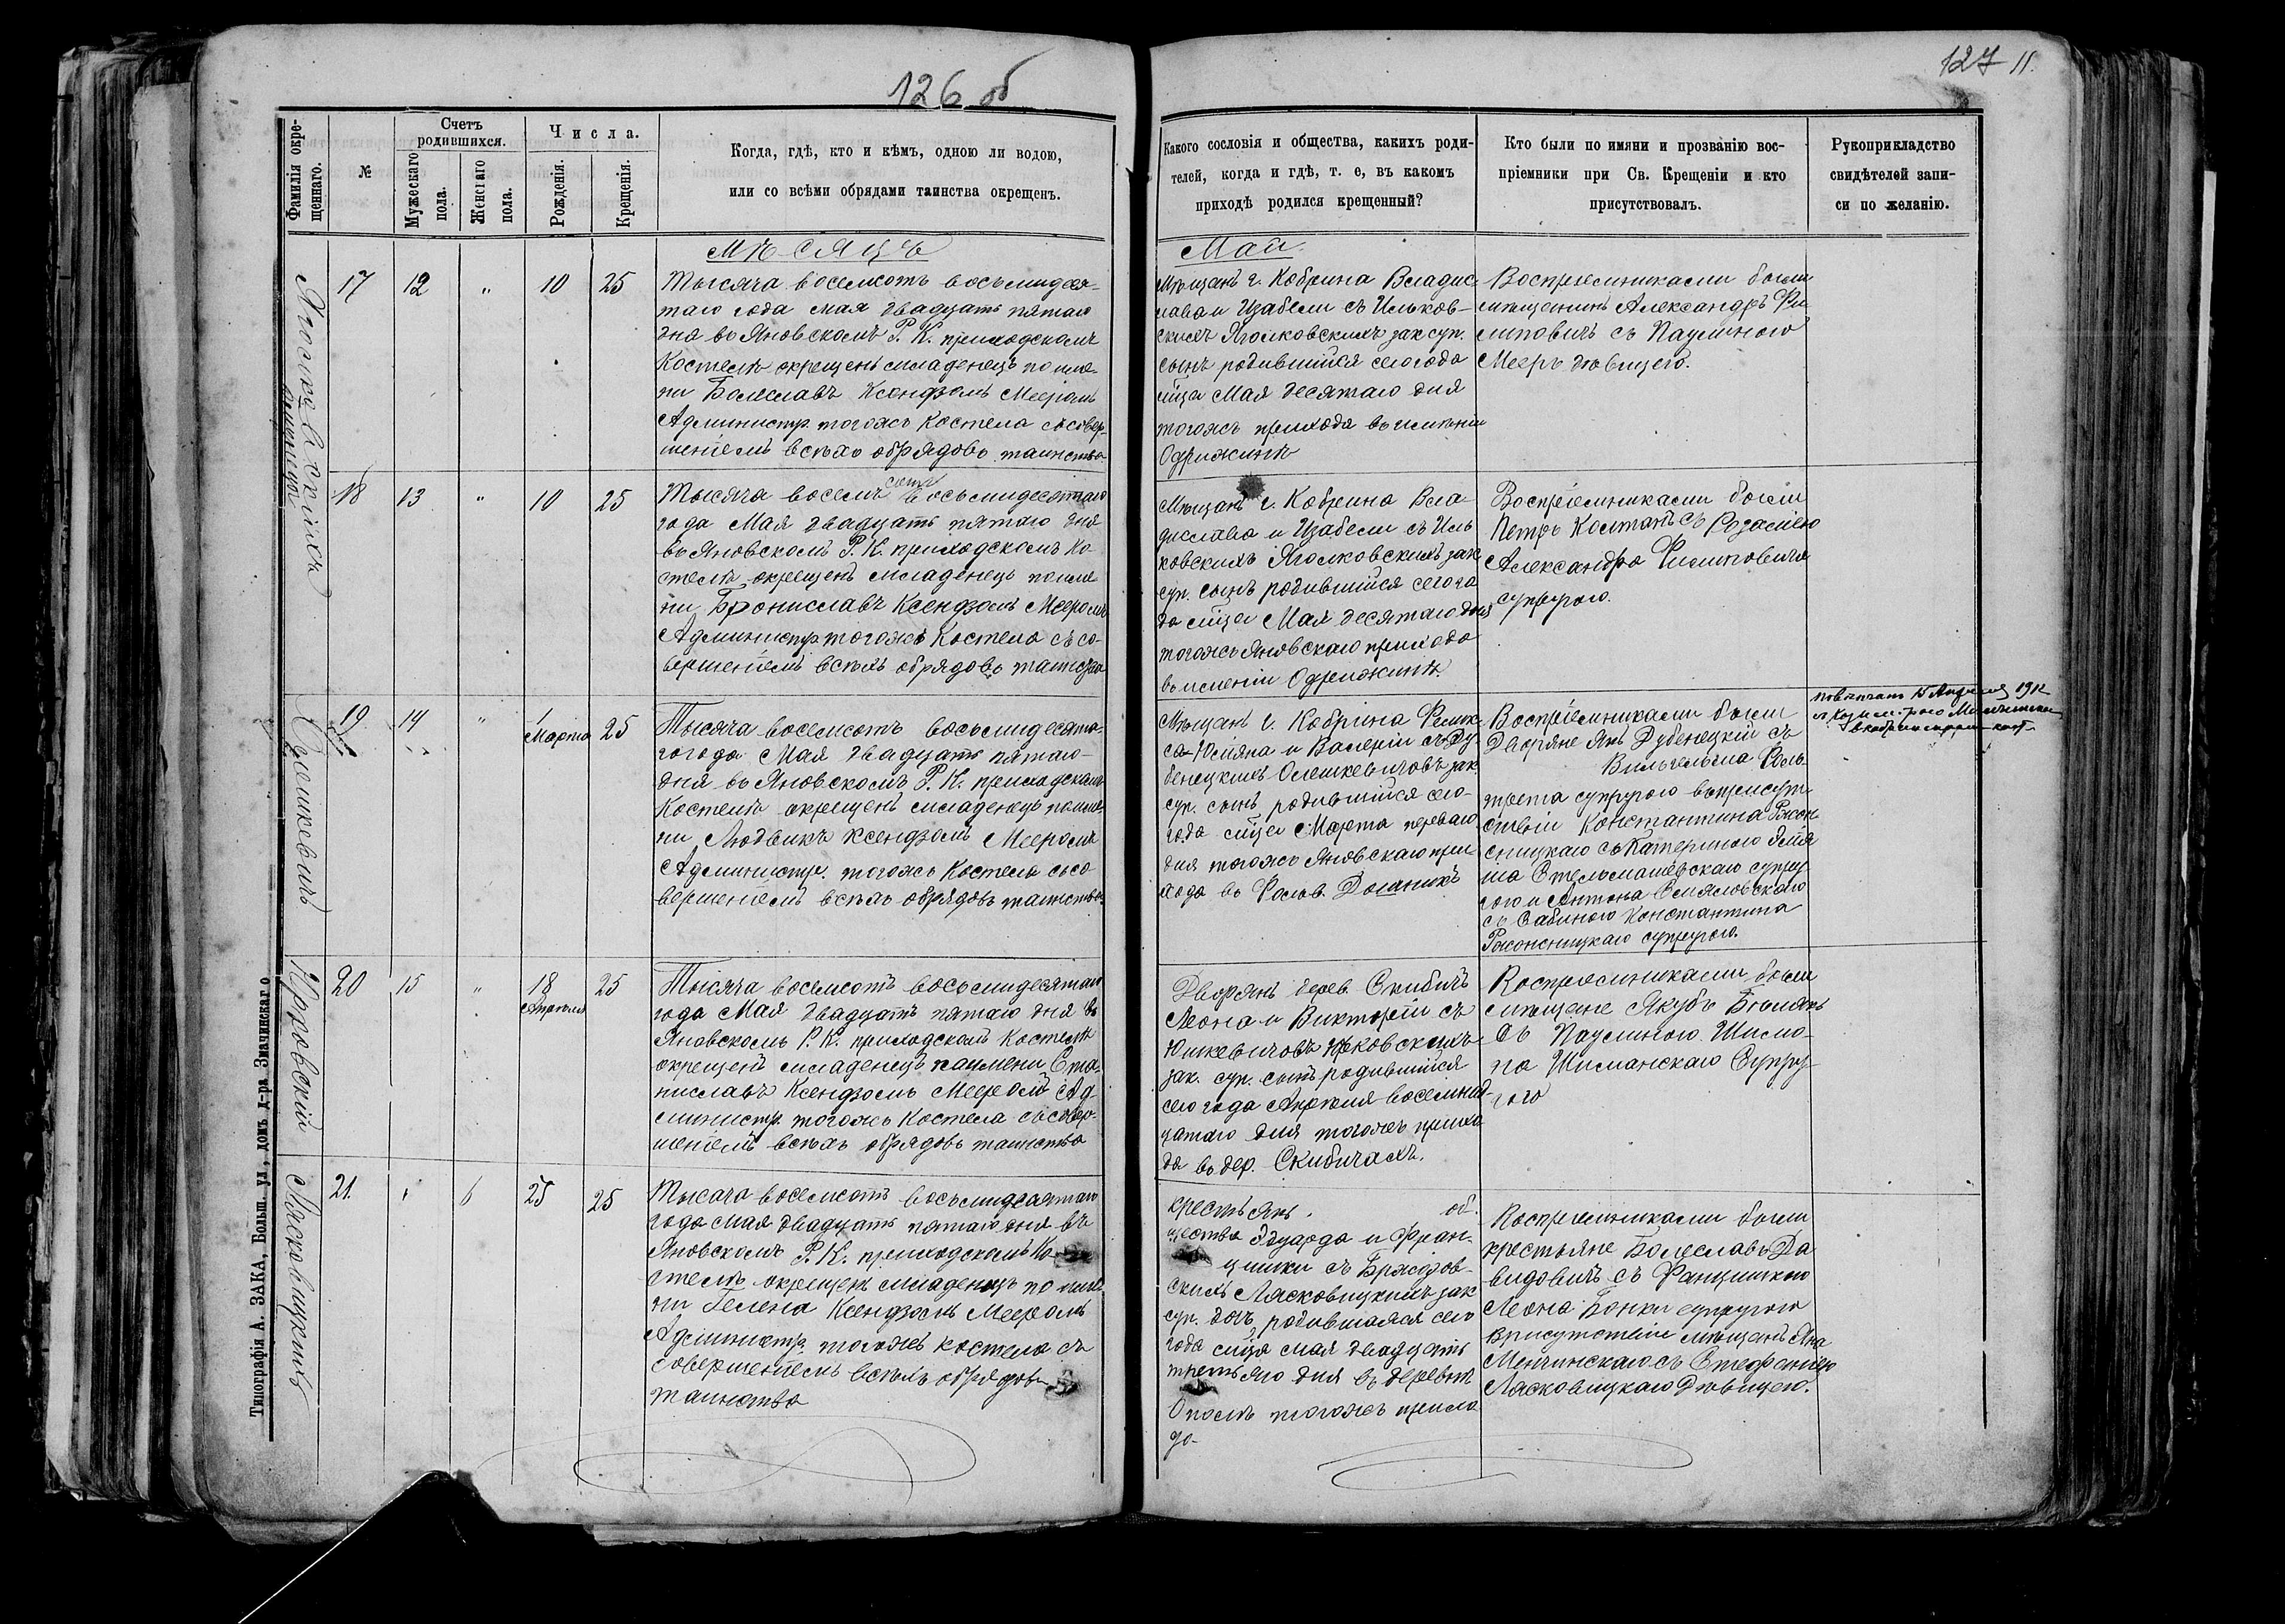 126 об
127 11.
Фамилія окре-
щеннаго.
№
Счетъ
родившихся.
Мужескаго
пола.
Женскаго
пола.
Числа.
Рожденія.
Крещенія.
Когда, гдѣ, кто и кѣмъ, одною ли водою,
или со всѣми обрядами таинства окрещенъ.
Какого сословія и общества, какихъ роди-
телей, когда и гдѣ, т. е, въ какомъ
приходѣ родился крещенный?
Кто были по имяни и прозванію вос-
пріемники при Св. Крещеніи и кто
присутствовалъ.
Рукоприкладство
свидѣтелей запи-
си по желанію.
Мѣсяцъ
Май.
17 12 " 10 25
Тысяча восемсотъ восьмидеся-
таго года мая двадцать пятаго
дня во Яновскомъ Р. К. приходскомъ
Костелѣ окрещенъ младенецъ по име-
ни Болеславъ Ксендзомъ Мееромъ
Администр. тогожъ Костела съ совер-
шеніемъ всѣхъ обрядовъ таинства
Мѣщанъ г. Кобрина Владис-
лава и Изабели съ Ильков-
скихъ Яголковскихъ зак. суп.
сынъ родившійся сего года
мца Мая десятаго дня
тогожъ прихода въ имѣніи
Одрижинѣ
Воспріемниками были
мѣщанинъ Александръ Фи
липовичъ съ Паулиною
Мееръ дѣвицею.
18 13 " 10 25
Тысяча восемъ сотъ восьмидесятаго
года Мая двадцать пятаго дня
въ Яновскомъ Р. К. приходскомъ Ко
стелѣ окрещенъ младенецъ по име
ни Брониславъ Ксендзомъ Мееромъ
Администр. тогожъ Костела съ со-
вершеніемъ всѣхъ обрядовъ таинства
Мѣщанъ г. Кобрина Вла-
дислава и Изабели съ Иль
ковскихъ Яголковскихъ зак
суп. сынъ родившійся сего го
да мца Мая десятаго дня
тогожъ Яновскаго прихода
въ имѣніи Одрижинѣ.
Воспріемниками были
Петръ Колтанъ съ Розаліею
Александра Филиповича
супругою.
Олешкевичъ
19 14 " 1
Марта 25
Тысяча восемсотъ восьмидесята-
го года Мая двадцать пятаго
дня въ Яновскомъ Р. К. приходскомъ
Костелѣ окрещенъ младенецъ по име-
ни Людвикъ Ксендзомъ Мееромъ
Администр. тогожъ Костела съ со
вершеніемъ всѣхъ обрядовъ таинства
Мѣщанъ г. Кобрина Феликса
Юліяна и Валеріи съ Ду-
бенецкихъ Олешкевичовъ зак.
суп. сынъ родившійся сего
года мца Марта перваго
дня тогожъ Яновскаго при-
хода въ Фольв.
Воспріемниками были
Дворяне Янъ Дубенецкій съ
Вильгельма
супругою въ присут-
ствіи Константина
съ Катериною
супру
гою и Антона
съ Сабиною Константина
супругою.
Юрковскій
20 15 " 18
Апрѣля 25
Тысяча восемсотъ восьмидесятаго
года Мая двадцать пятаго дня въ
Яновскомъ Р. К. приходскомъ Костелѣ
окрещенъ младенецъ по имени Ста-
ниславъ Ксендзомъ Мееромъ Ад-
министр. тогожъ Костела съ совер-
шеніемъ всѣхъ обрядовъ таинства
Дворянъ дерев. Скибичъ
Леона и Викторіи съ
Юшкевичовъ Юрковскихъ
зак. суп. сынъ родившійся
сего года Апрѣля восемнад-
цатаго дня тогожъ прихо
да въ дер. Скибичахъ.
Воспріемниками были
мѣщане Якубъ
съ Паулиною Шимо-
на Шиманскаго Супру-
гою
Лясковицкихъ
21. " 6 25 25
Тысяча восемсотъ восьмидесятаго
года мая двадцать пятаго дня въ
Яновскомъ Р. К. приходскомъ Ко-
стелѣ окрещенъ младенецъ по име-
ни Гелена Ксендзомъ Мееромъ
Администр. тогожъ костела съ
совершеніемъ всѣхъ обрядовъ
таинства
крестьянъ. об-
щества Эдуарда и Фран-
цишки съ
Лясковицкихъ зак
суп. дочъ родившаяся сего
года мца мая двадцать
третьяго дня въ деревнѣ
Ополѣ тогожъ прихо
да-
Воспріемниками были
крестьяне Болеславъ Да
видовичъ съ Францишкою
Леона Бонки супругою
въ присутствіи мѣщанъ Яна
съ Стефаніею
Лясковицкаго дѣвицею.
Типографія А. ЗАКА, Больш. ул., домъ д-ра Значинскаго